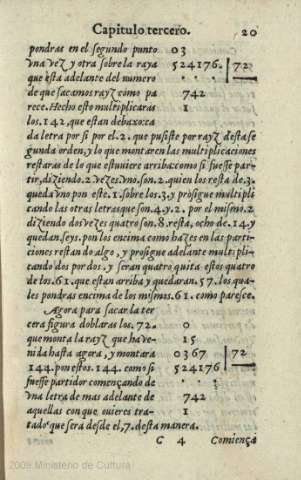 Capitulo tercero. 20
pondras en el segundo punto 03
vna vez y otra sobre la raya 524176. | 72
que esta adelante del numero . . .
de que sacamos rayz como pa 742
rece. Hecho esto multiplicaras 1
los. 142. que estan debaxo: ca
da letra por si por el. 2. que pusiste por rayz desta se
gunda orden, y lo que montaren las multiplicaciones
restaras de lo que estuuiere arriba: como si fuesse par-
tir, diziendo. 2. vezes. vno. son. 2. quien los resta de. 3.
queda vno pon este. 1. sobre los. 3. y prosigue multipli
cando las otras letras que son. 4. y. 2. por el mismo. 2.
diziendo dos vezes quatro son. 8. resta, ocho de. 14. y
quedan. seys. pon los encima como hazes en las parti-
ciones restando algo, y prosigue adelante multipli-
cando dos por dos. y seran quatro quita estos quatro
de los. 61. que estan arriba y quedaran. 57. los qua-
les pondras encima de los mismos. 61. como paresce.
Agora para sacar la ter
cera figura doblaras los. 72. 0
que monta la rayz que ha ve- 15
nida hasta agora, y montara 0367 | 72
144. pon estos. 144. como si 524176
fuesse partidor començando de . . .
vna letra de mas adelante de 742
aquellas con que vuieres tra- 1
tado: que sera desde el, 7. desta manera.
C 4 Comiença
2009 Ministerio de Cultura